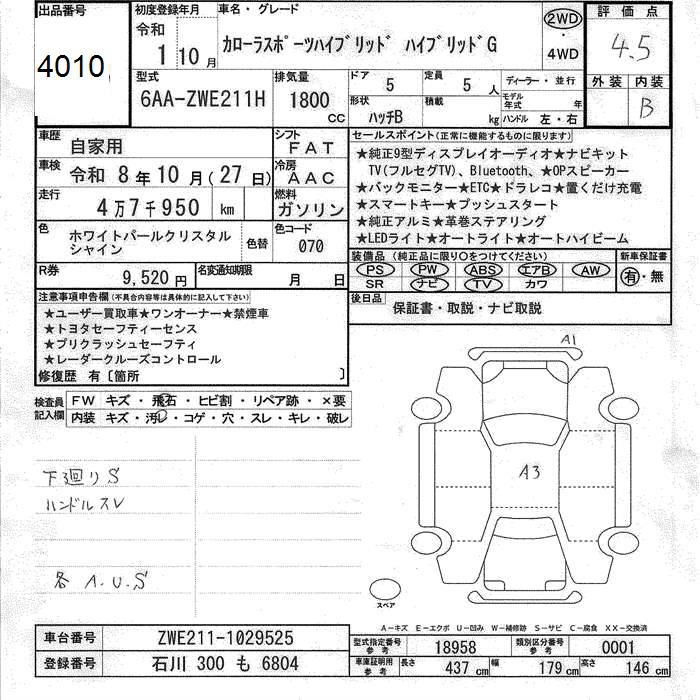 出品番号
4010
初度登録年月
令和
1 10 月
車名・グレード
カローラスポーツハイブリッド ハイブリッドG
2WD
・
4WD
評価点
4.5
外装 内装
B
型式
6AA-ZWE211H
排気量
1800
CC
ドア
5
定員
5 人
形状
ハッチB
積載
kg
ディーラー・並行
モデル年式 年
ハンドル 左・右
車歴
自家用
シフト
FAT
車検
令和 8 年 10 月(27 日)
冷房
AAC
走行
4 万 7 千 950 km
燃料
ガソリン
色
ホワイトパールクリスタル
シャイン
色替
色コード
070
R券
9,520 円
名変通知期限
月 日
セールスポイント(正常に機能するものに限ります)
★純正9型ディスプレイオーディオ★ナビキット
TV(フルセグTV)、Bluetooth、★OPスピーカー
★バックモニター★ETC★ドラレコ★置くだけ充電
★スマートキー★プッシュスタート
★純正アルミ★革巻ステアリング
★LEDライト★オートライト★オートハイビーム
装備品(純正品に限り〇をつけてください)
PS PW ABS エアB AW
SR ナビ TV カワ
新車保証書
有・無
後日品
保証書・取説・ナビ取説
注意事項申告欄(不具合内容等は具体的に記入して下さい)
★ユーザー買取車★ワンオーナー★禁煙車
★トヨタセーフティーセンス
★プリクラッシュセーフティ
★レーダークルーズコントロール
修復歴 有〔箇所 〕
検査員
記入欄
FW キズ・飛石・ヒビ割・リペア跡・×要
内装 キズ・汚レ・コゲ・穴・スレ・キレ・破レ
下廻りS
ハンドルスレ
各 A.U.S
A1
A3
スペア
A－キズ E－エクボ U－凹み W－補修跡 S－サビ C－腐食 XX－交換済
車台番号
ZWE211-1029525
登録番号
石川 300 も 6804
型式指定番号
参考
18958
類別区分番号
参考
0001
車庫証明用
参考
長さ 437 cm
幅 179 cm
高さ 146 cm